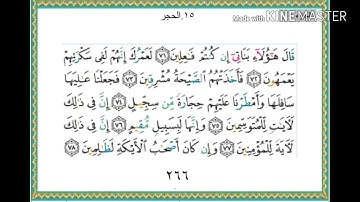 ١٥.الحجر
Made with KINEMASTER
قَالَ هَٰٓؤُلَآءِ بَنَاتِىٓ إِن كُنتُمْ فَٰعِلِينَ ﴿٧١﴾ لَعَمْرُكَ إِنَّهُمْ لَفِى سَكْرَتِهِمْ
يَعْمَهُونَ ﴿٧٢﴾ فَأَخَذَتْهُمُ ٱلصَّيْحَةُ مُشْرِقِينَ ﴿٧٣﴾ فَجَعَلْنَا عَٰلِيَهَا
سَافِلَهَا وَأَمْطَرْنَا عَلَيْهِمْ حِجَارَةً مِّن سِجِّيلٍ ﴿٧٤﴾ إِنَّ فِى ذَٰلِكَ
لَءَايَٰتٍ لِّلْمُتَوَسِّمِينَ ﴿٧٥﴾ وَإِنَّهَا لَبِسَبِيلٍ مُّقِيمٍ ﴿٧٦﴾ إِنَّ فِى ذَٰلِكَ
لَءَايَةً لِّلْمُؤْمِنِينَ ﴿٧٧﴾ وَإِن كَانَ أَصْحَٰبُ ٱلْأَيْكَةِ لَظَٰلِمِينَ ﴿٧٨﴾
٢٦٦